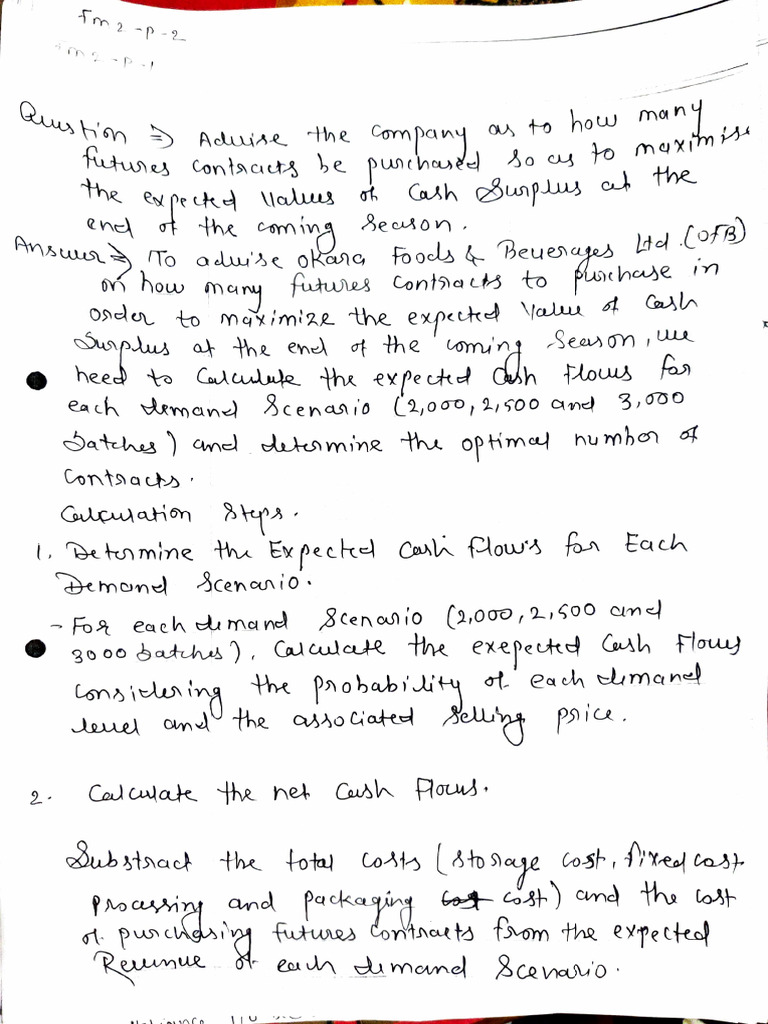 Fm 2 - P - 2
Fm 2 - P - 1
Question ⇒ Advise the company as to how many
futures contracts be purchased so as to maximise
the expected values of cash surplus at the
end of the coming season.
Answer ⇒ To advise Okara Foods & Beverages Ltd. (OFB)
on how many futures contracts to purchase in
order to maximize the expected value of cash
surplus at the end of the coming season, we
need to calculate the expected cash flows for
each demand scenario (2,000, 2,500 and 3,000
batches) and determine the optimal number of
contracts.
Calculation steps.
1. Determine the Expected Cash Flow's for Each
Demand Scenario.
- For each demand scenario (2,000, 2,500 and
3000 batches), calculate the exepected cash flows
considering the probability of each demand
level and the associated selling price.
2. Calculate the net cash flows.
Substract the total costs (storage cost, fixed cost
processing and packaging cost cost) and the cost
of purchasing futures contracts from the expected
Revenue of each demand scenario.